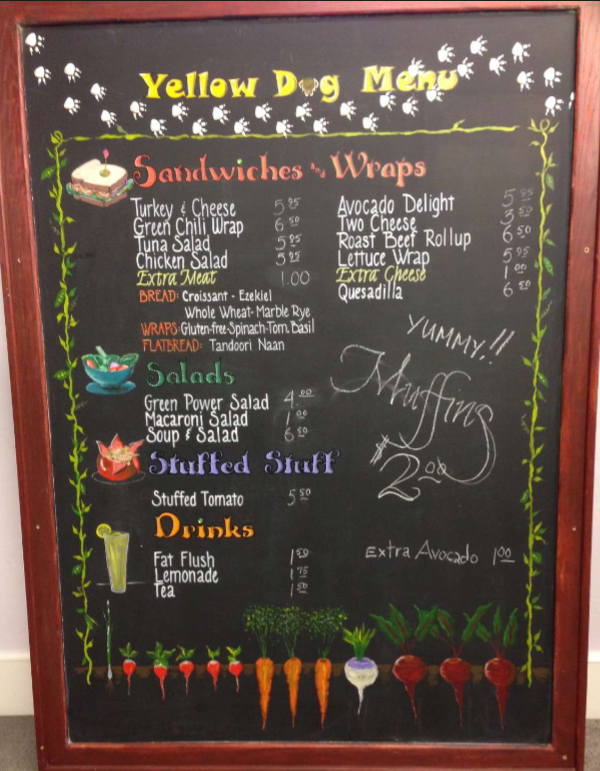 Yellow Dog Menu
Sandwiches and Wraps
Turkey & Cheese 5.95
Green Chili Wrap 6.50
Tuna Salad 5.95
Chicken Salad 5.95
Extra Meat 1.00
BREAD: Croissant - Ezekiel
Whole Wheat - Marble Rye
WRAPS: Gluten-free-Spinach-Tom. Basil
FLATBREAD: Tandoori Naan
Avocado Delight 5.95
Two Cheese 3.50
Roast Beef Rollup 6.50
Lettuce Wrap 5.95
Extra Cheese 1.00
Quesadilla 6.50
YUMMY!!
Muffins
$2.00
Salads
Green Power Salad 4.00
Macaroni Salad 1.00
Soup & Salad 6.50
Stuffed Stuff
Stuffed Tomato 5.50
Drinks
Fat Flush 1.50
Lemonade 1.75
Tea 1.50
Extra Avocado 1.00